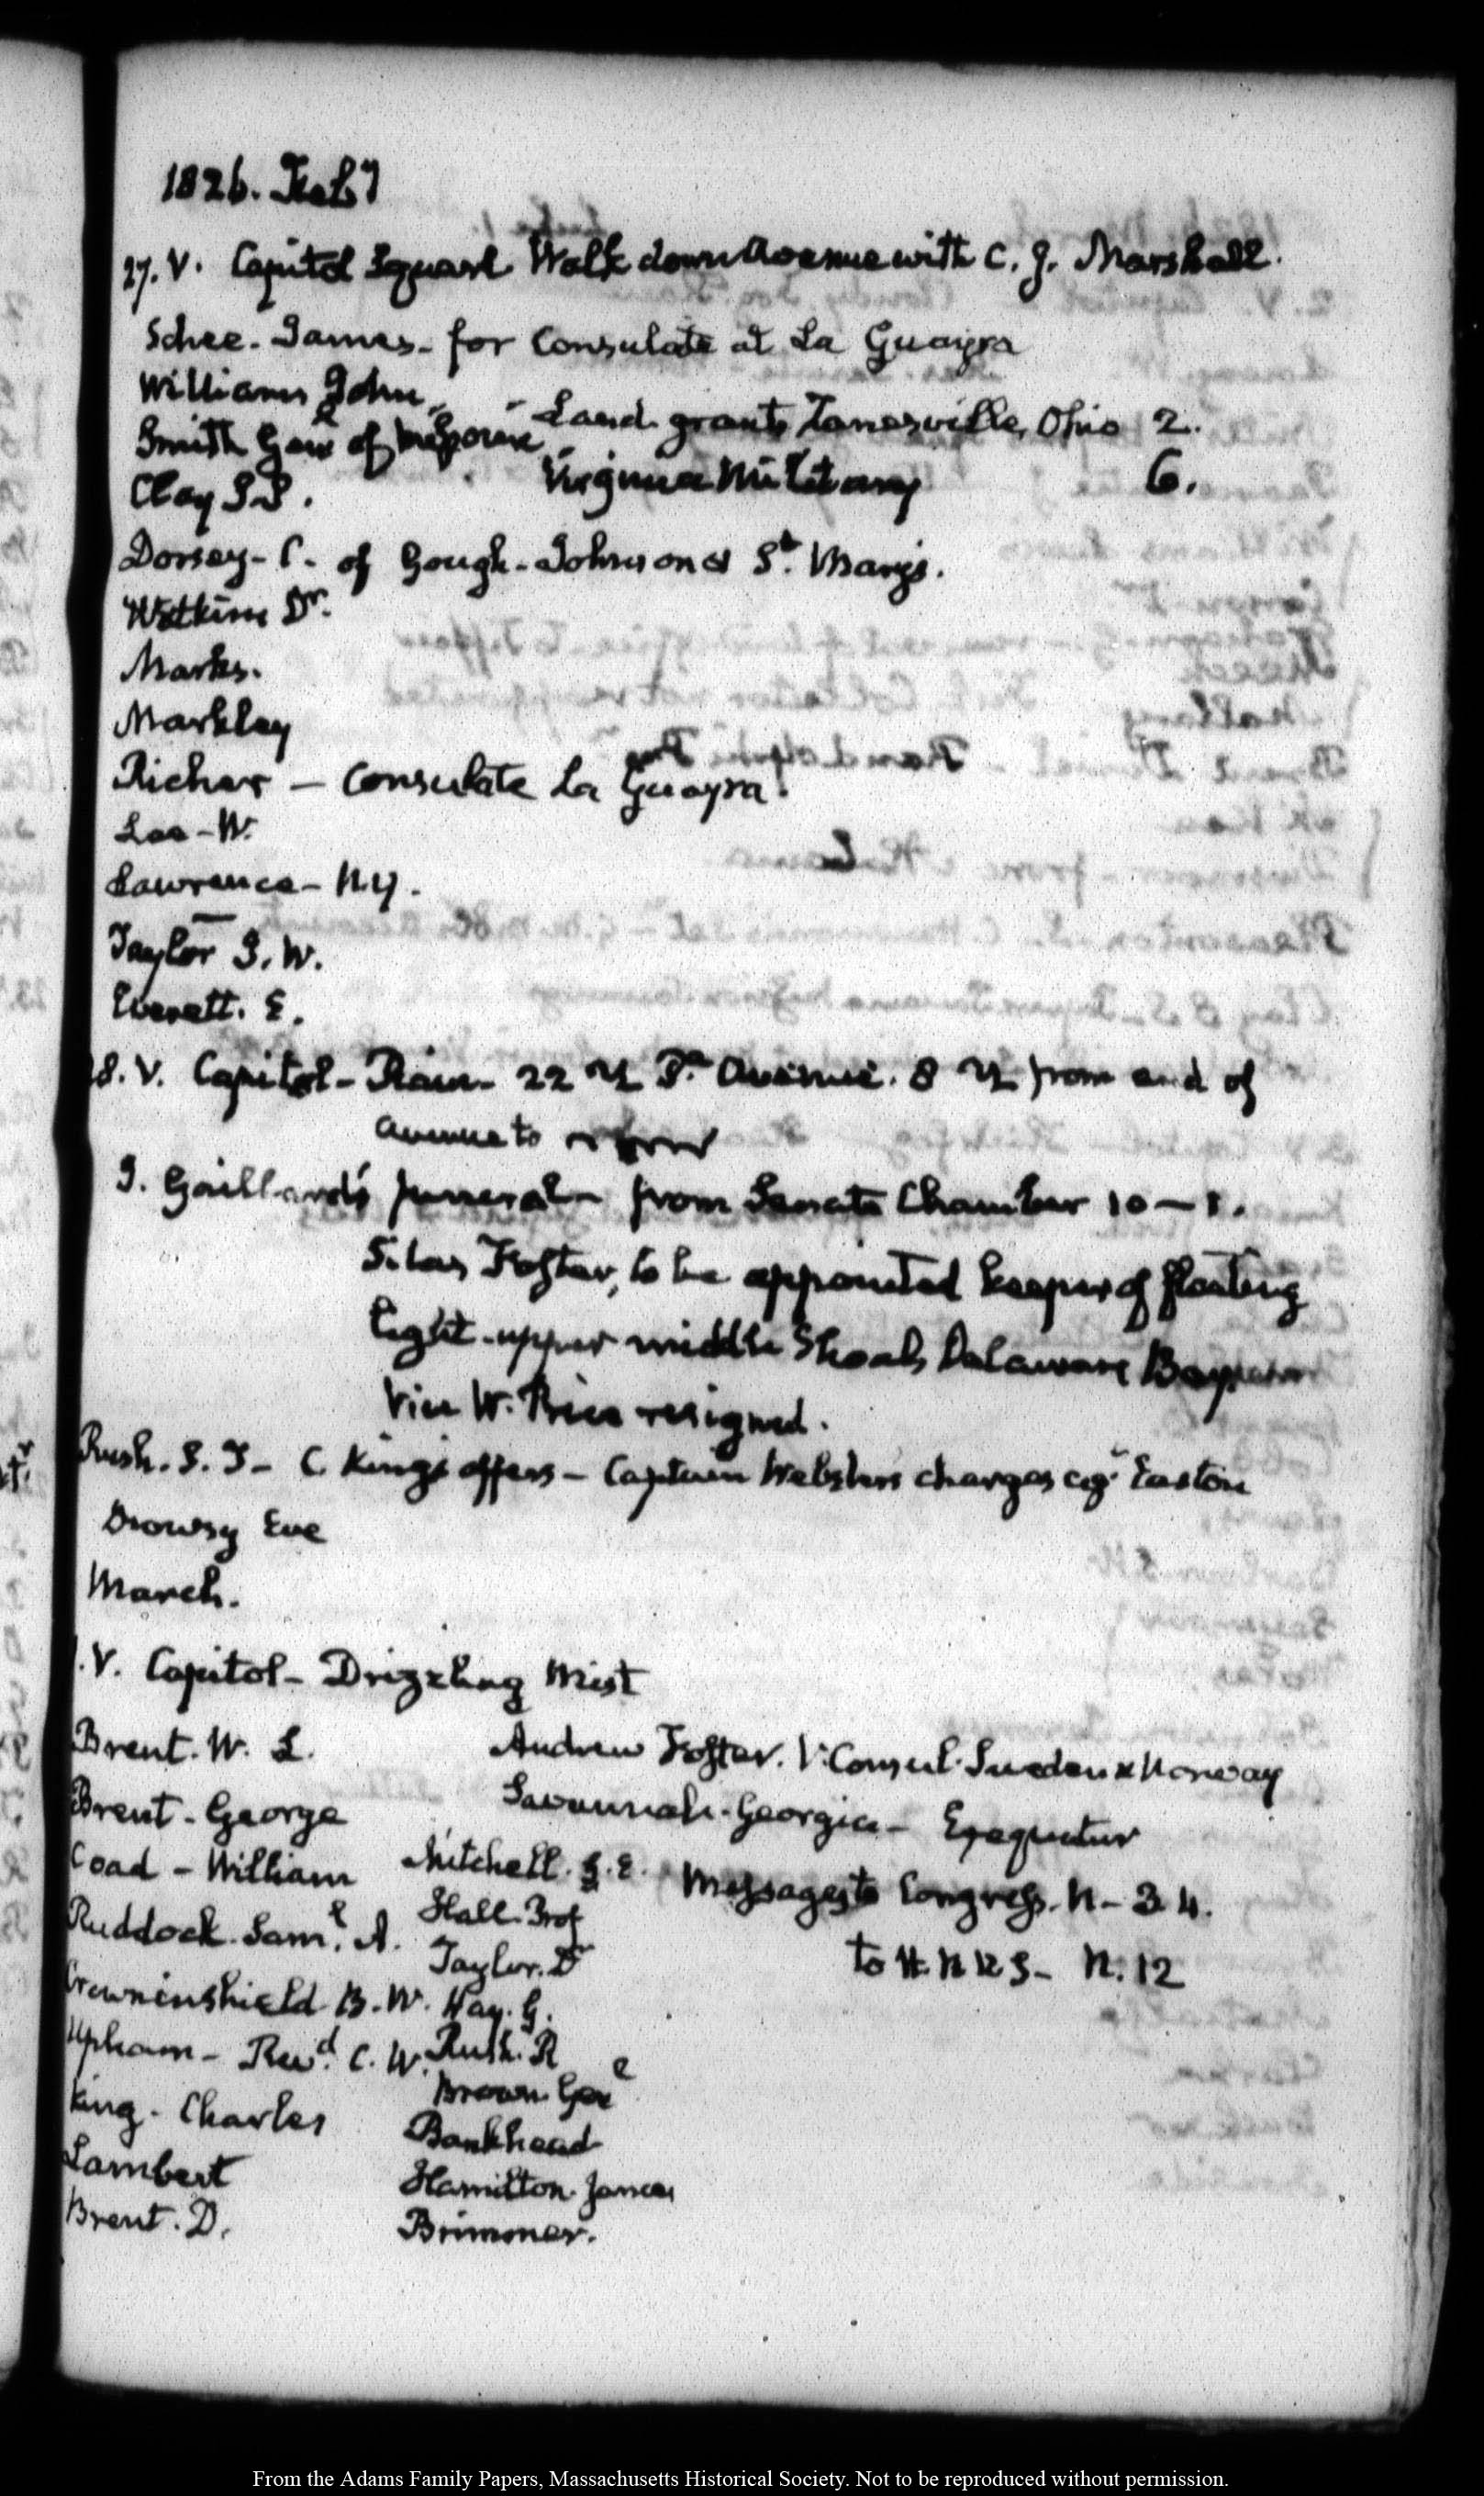 1826. Feby
27. V. Capitol Square Walk down Avenue with C. J. Marshall.
Schee. James. for Consulate at La Guayra
Williams John
Smith Genl of
- Land grants Zanesville, Ohio 2.
Clay S.S.
Virginia Military 6.
Dorsey - C. of Gough - Johnson & St. Mary's.
Watkins Dr.
Marks.
Markley
Richer — Consulate La Guayra.
Lee - W.
Lawrence - N.Y.
Taylor J. W.
Everett. E.
28. V. Capitol - Rain - 22 M Pa. Avenue. 8 M from end of
avenue to
J. Gaillard's funeral - from Senate Chamber 10 — 1.
Silas Foster, to be appointed keeper of floating
light - upper middle Shoals Delaware Bay
Vice W. Rice resigned.
Rush. S. T - C. King's offers - Captain Webster's charges agt Easton
Drowsy Eve
March.
1. V. Capitol - Drizzling Mist
Brent. W. L.
Andrew Foster. V. Consul. Sweden & Norway
Savannah - Georgia - Exequatur
Brent - George
Coad - William
Mitchell. G. E.
Messages to Congress. N - 3 4.
Ruddock. Saml. A.
Hall. Prof
to H. N. U.S - N. 12
Taylor. Dr
Crowninshield B. W.
Hay. G.
Upham - Revd. C. W.
Rush. R
Brown. Genl
King - Charles
Bankhead
Lambert
Hamilton. James
Brent. D.
Brimmer.
From the Adams Family Papers, Massachusetts Historical Society. Not to be reproduced without permission.